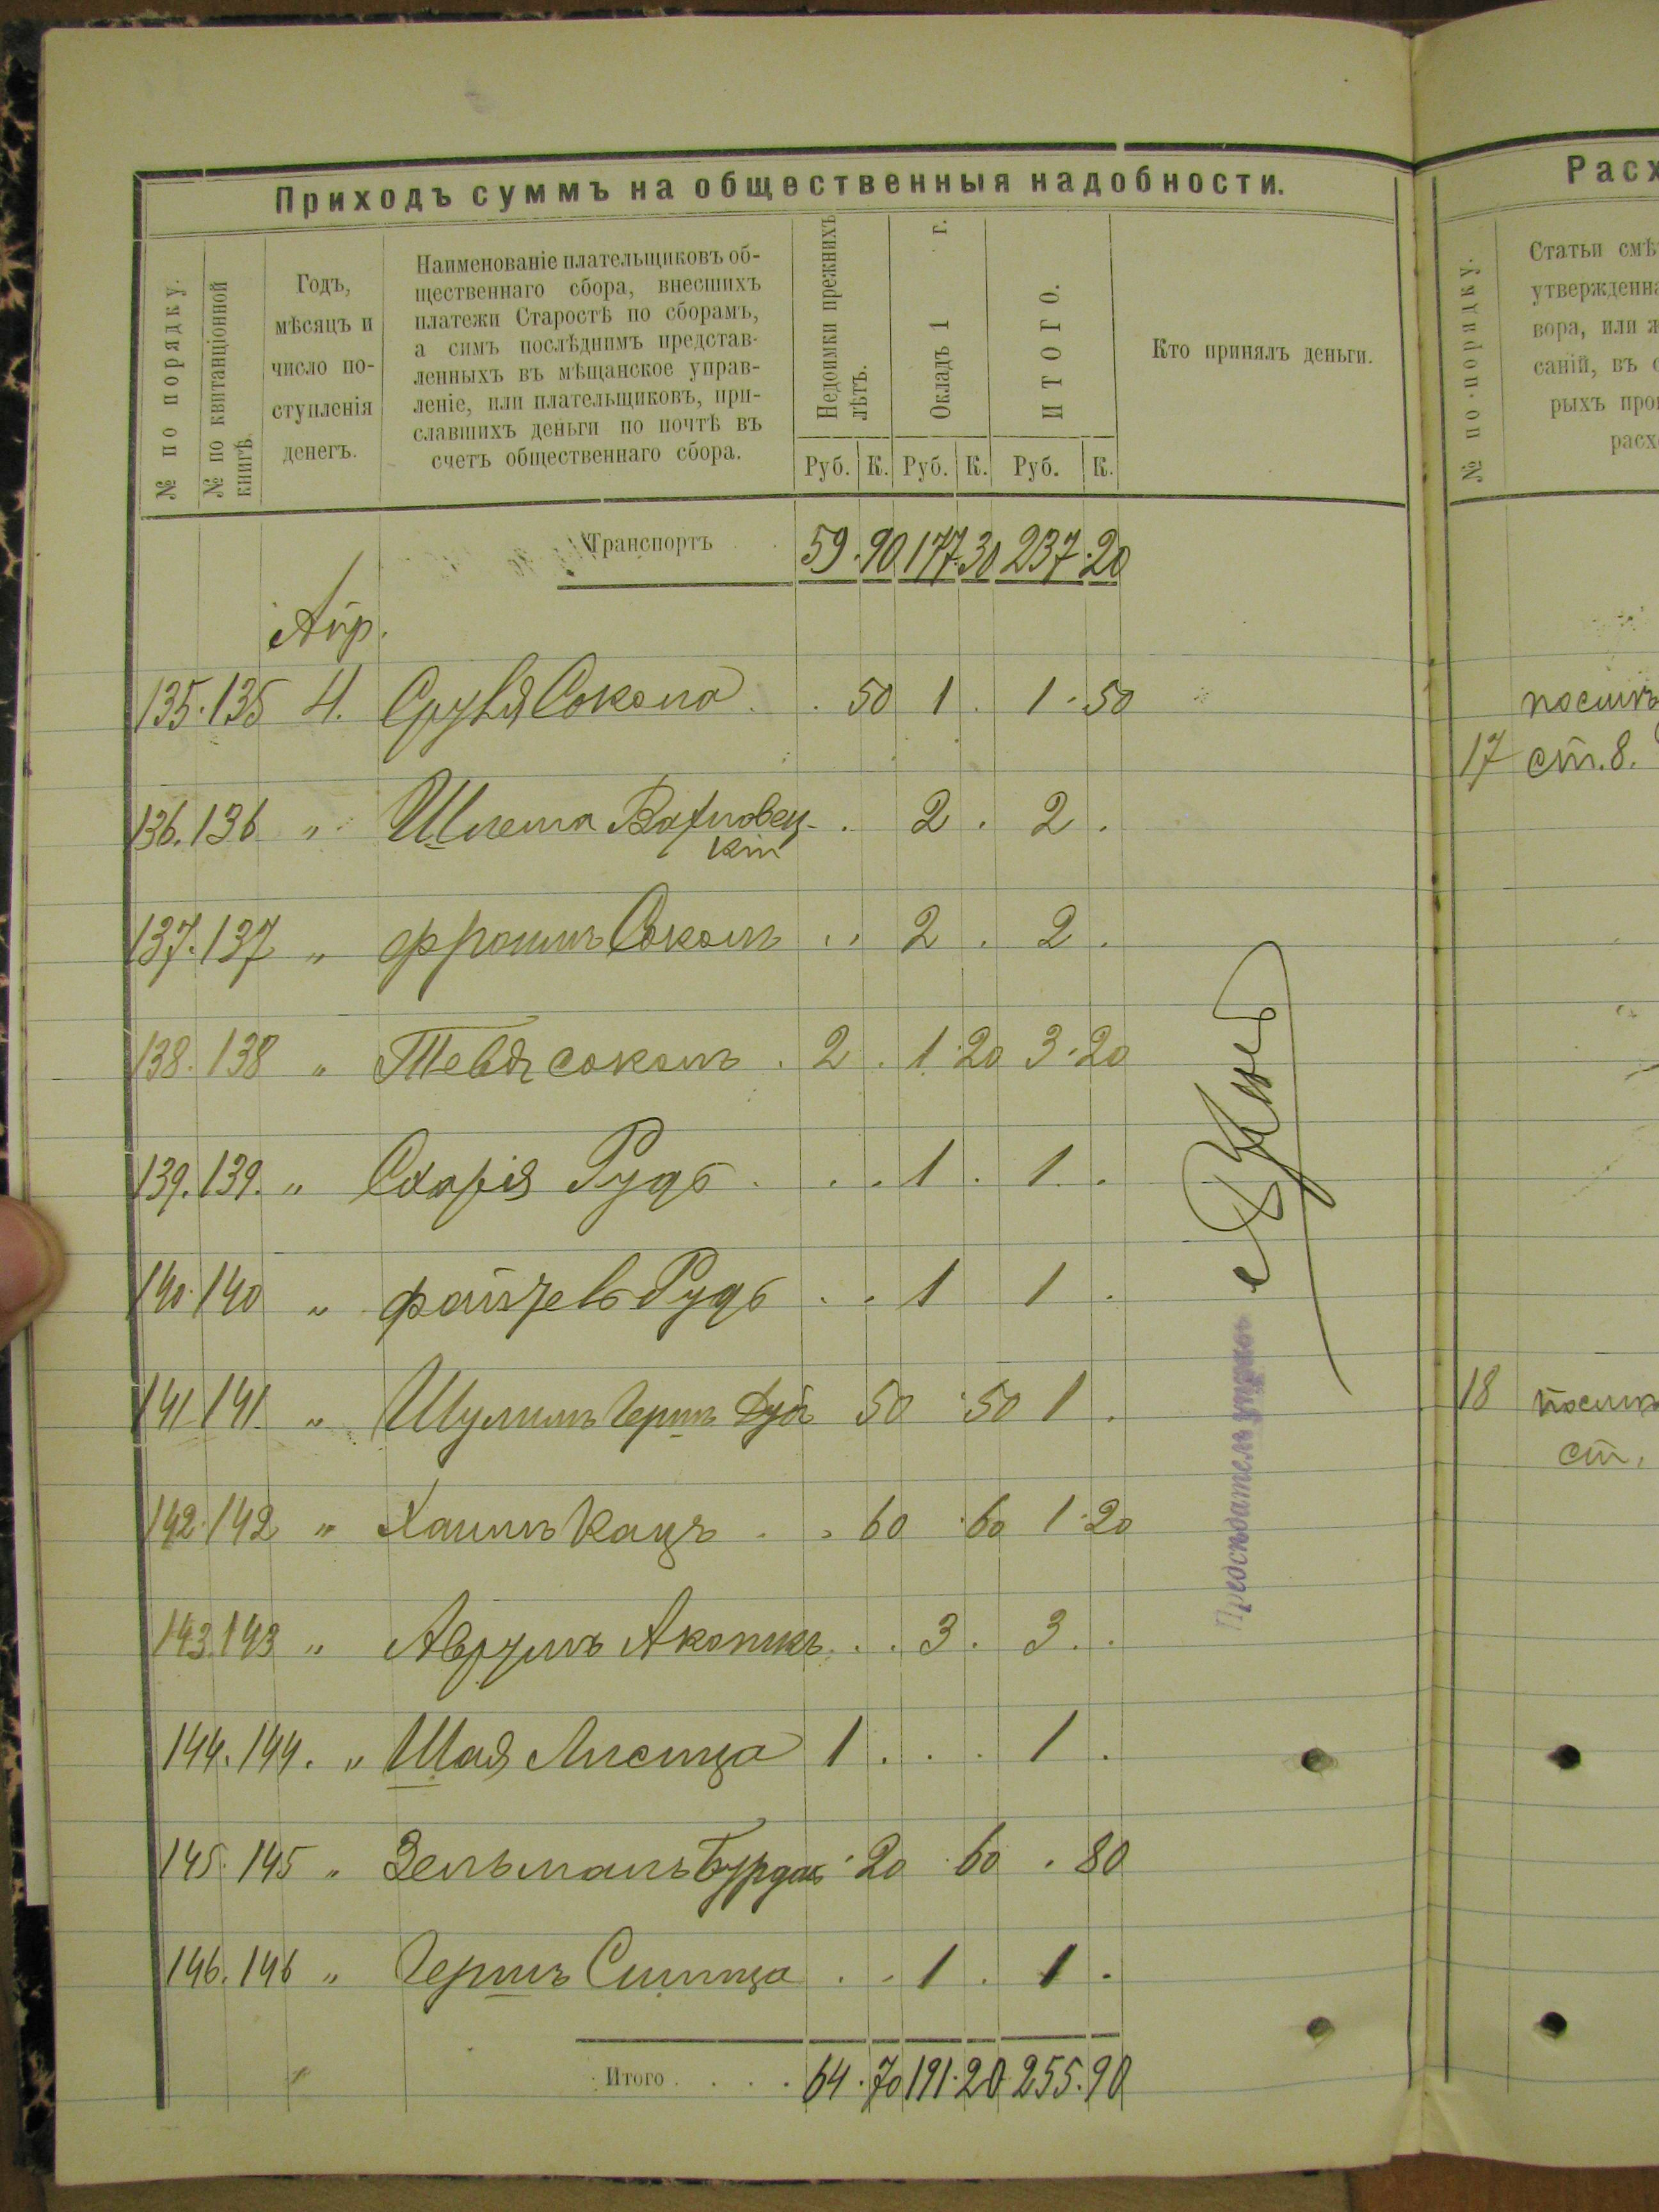 Приходъ суммъ на общественныя надобности.
№ по порядку.
№ по квитанціонной
книгѣ.
Годъ,
мѣсяцъ и
число по-
ступленія
денегъ.
Наименованіе плательщиковъ об-
щественнаго сбора, внесшихъ
платежи Старостѣ по сборамъ,
а симъ послѣднимъ представ-
ленныхъ въ мѣщанское управ-
леніе, или плательщиковъ, при-
славшихъ деньги по почтѣ въ
счетъ общественнаго сбора.
Недоимки прежнихъ
лѣтъ.
Окладъ 1 г.
ИТОГО.
Кто принялъ деньги.
Руб. К. Руб. К. Руб. К.
Транспортъ 59. 90 177. 30 237. 20
Апр.
135. 135 4. Сокола . . 50 1 . 1. 50
136. 136 " Шлема . 2 . 2 .
кій
137. 137 " Фроимъ Соколъ . . 2 . 2 .
138. 138 " Тевя соколъ . 2 . 1. 20 3. 20
139. 139. " Рудь . . . 1 . 1 . .
140. 140 " Рудь . . 1 1 .
141 141. " Шулимъ Гершъ 50 . 50 1 .
142. 142 " Хаимъ Кацъ . . 60 . 60 1. 20
143. 143 " Аврумъ . . 3 . 3 . .
144. 144. " Шая Лисица 1 . . . 1 .
145. 145 " Зельманъ Бурдакъ . 20 . 60 . 80
146. 146 " Гершъ Синица . . 1 . 1 .
Итого . . . . 64. 70 191. 20 255. 90
Предсѣдатель
Расх
№ по порядку.
Статьи смѣ
утвержденна
вора, или ж
саній, въ с
рыхъ прои
расхо
17 ст. 8.
18
ст.